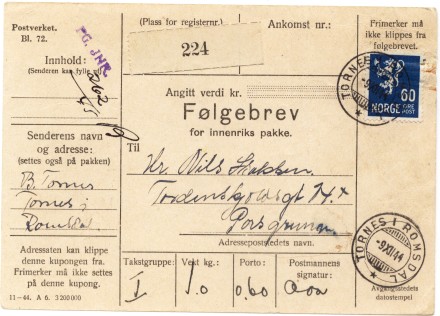 Postverket.
Bl. 72.
(Plass for registernr.)
Ankomst nr.:
Frimerker må
ikke klippes fra
følgebrevet.
PG. JNR.
262
45
Innhold:
(Senderen kan fylle ut)
224
TORNES I
60
NORGE
ØRE
POST
Angitt verdi kr.
Følgebrev
for innenriks pakke.
Senderens navn
og adresse:
(settes også på pakken)
B. Tornes
Tornes i
Romsdal
Til
Hr. Nils
Tordenskjoldsgt
Porsgrunn
Adressepoststedets navn.
Adressaten kan klippe
denne kupongen fra.
Frimerker må ikke settes
på denne kupong.
11-44. A 6. 3 200 000
Takstgruppe:
Vekt kg.:
Porto:
Postmannens
signatur:
I
1.0
0.60
TORNES I ROMSDAL
-9XII44
Avgangsstedets
datostempel